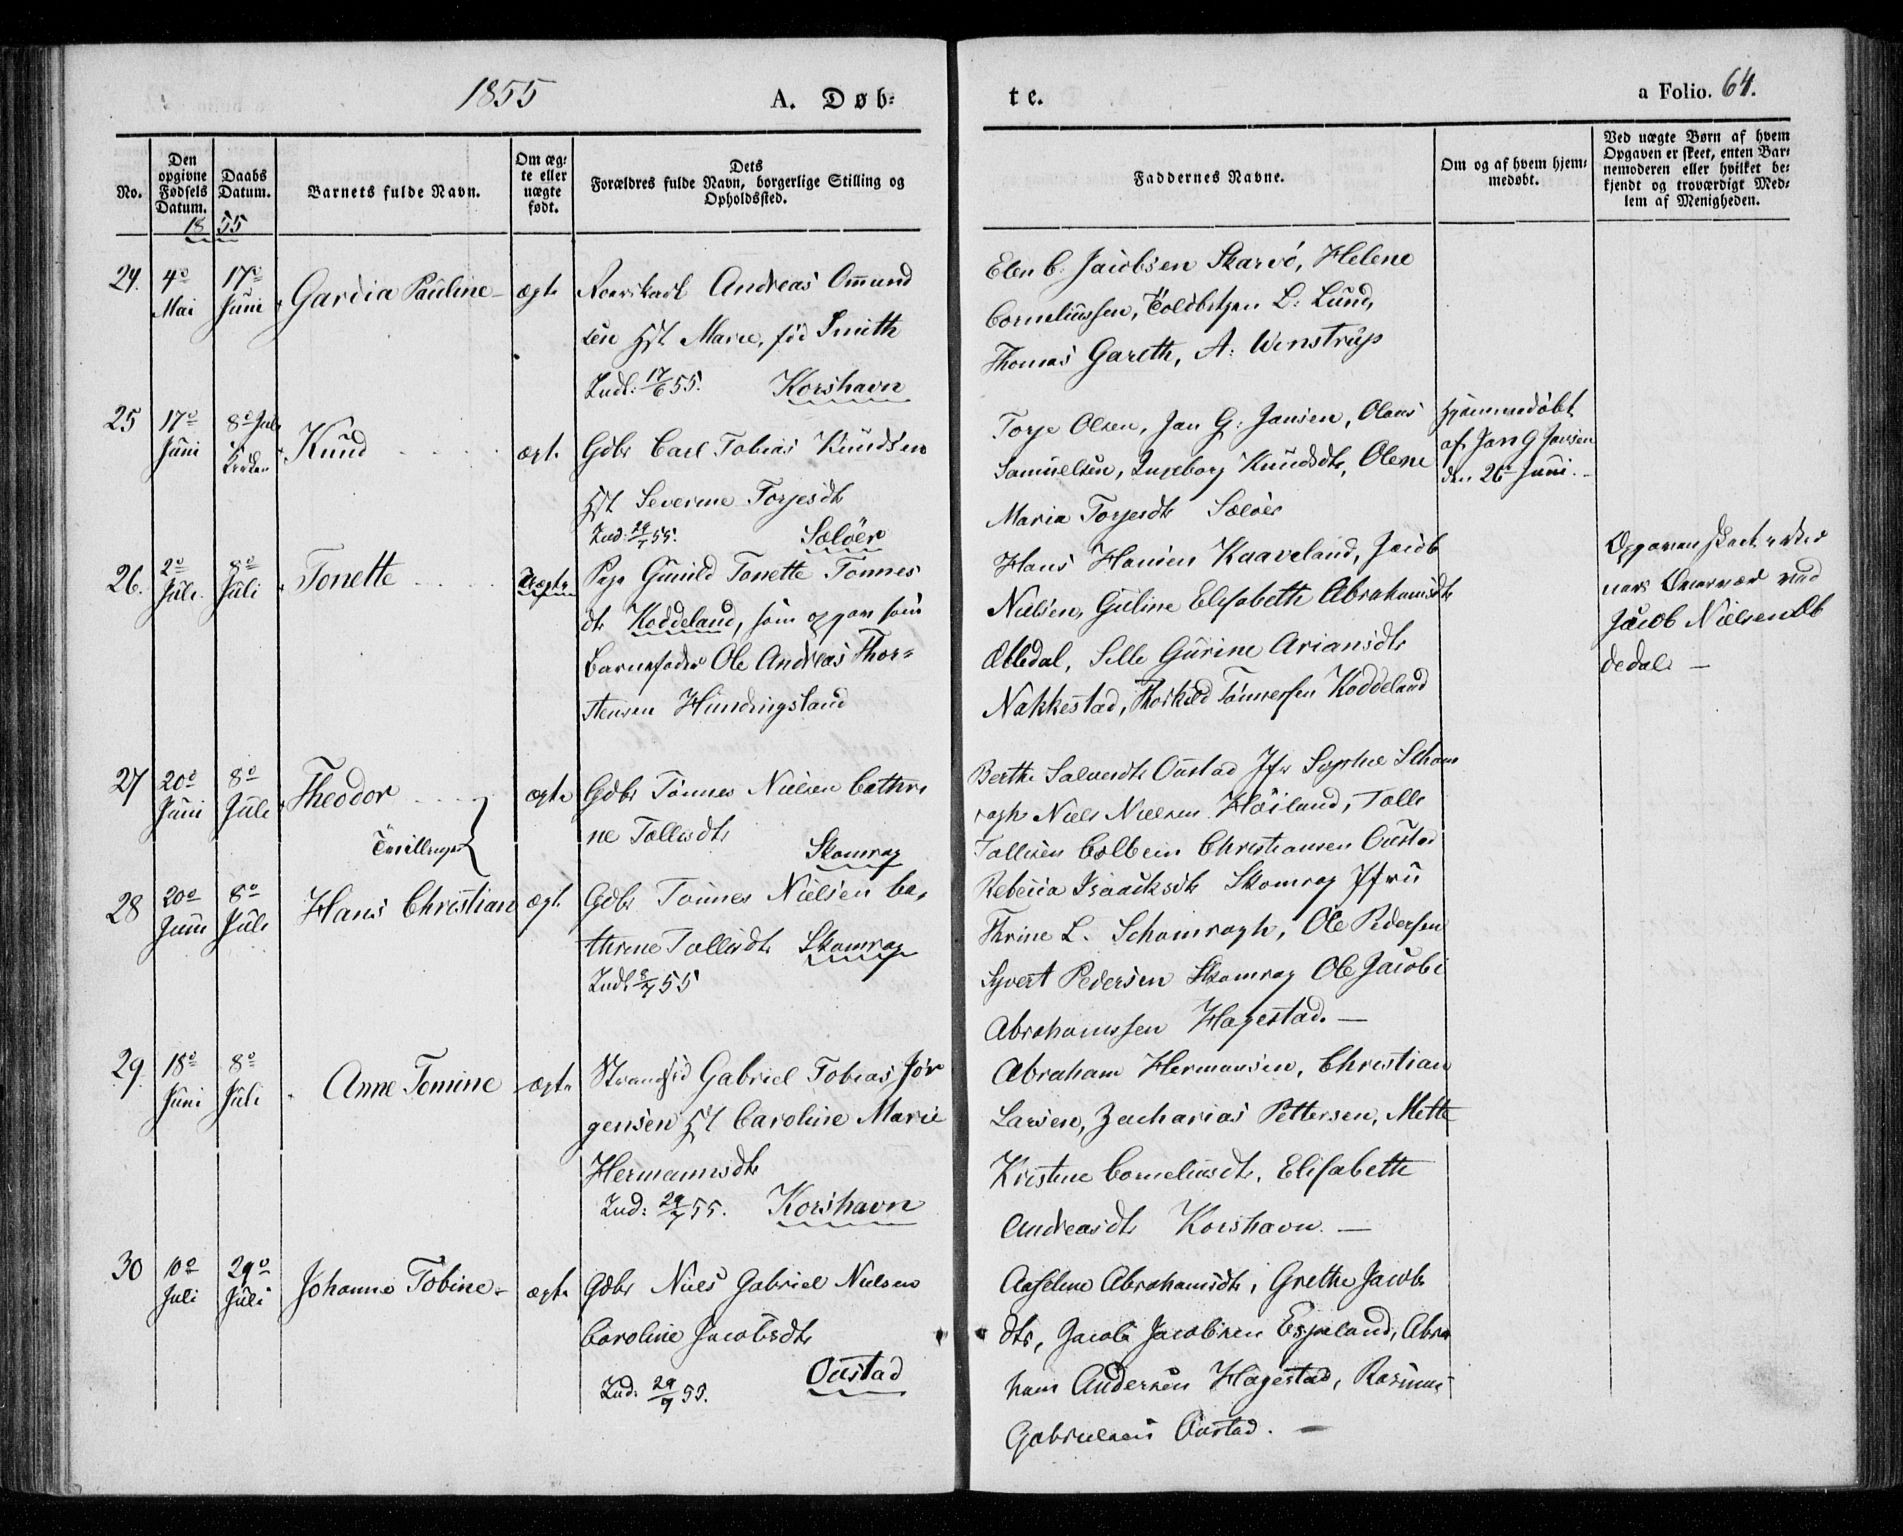 1855 A. Døb-
te. a Folio. 64.
No.
Den opgivne Fødsels Datum.
Daabs Datum.
Barnets fulde Navn.
Om ægte eller uægte født.
Dets Forældres fulde Navn, borgerlige Stilling og Opholdssted.
Faddernes Navne.
Om og af hvem hjemmedøbt.
Ved uægte Børn af hvem Opgaven er skeet, enten Barnemoderen eller hvilket bekjendt og troværdigt Medlem af Menigheden.
1855
24. 4de Mai 17de Juni Gardia Pauline ægte
Andreas Ommund
sen Hst Marie, fød Smith
Indl: 17/6 55. Korshavn
Elen C. Jacobsen Skarvö, Helene
Corneliussen, Toldbetjen L: Lund,
Thomas Gareth, A: Winstrup
25 17de Juni 8de Juli i Kirken Knud ægte
Gdbr Carl Tobias Knudsen
Hst Severine Torjesdtr
Ind: 29/7 55. Sælöer
Torje Olsen, Jan G: Jansen, Olaus
Samuelsen, Ingeborg Knudsdtr, Olene
Maria Torjesdtr Sælöer
Hjemmedöbt
af Jan G Jansen
den 26de Juni.
26. 2de Juli. 8de Juli Tonette Uægte
Pige Gunild Tonette Tönnes
dtr Koddeland, som opgav som
Barnefader Ole Andreas Thor-
stensen Hundingsland
Hans Hansen Kaaveland, Jacob
Nielsen, Guline Elisabeth Abrahamsdtr
Øbedal, Sille Gurine Ariansdtr
Nakkestad, Thorkild Tönnessen Koddeland
Opgaven skeet i
nærværet ved
Jacob Nielsen Øb
dedal. —
27 20de Juni 8de Juli Theodor ægte
Gdbr Tönnes Nielsen Cathri
ne Tollisdtr Skomrag
Tvillinger
Berthe Salvesdtr Oustad Jfr Sophie Schom
ragh Niels Nielsen Höiland, Tolle
Tollisen Colbein Christiansen Oustad
28 20de Juni 8de Juli Hans Christian ægte
Gdbr Tönnes Nielsen Ca-
thrine Tollisdtr Skomrag
Indl 8/7 55
Rebecca Isaacksdtr Skomrag Jfru
Thrine L. Schomragh, Ole Pedersen
Syvert Pedersen Skomrag Ole Jacob
Abrahamssen Hagestad. —
29. 18de Juni 8de Juli Anne Tomine ægte
Strandsid Gabriel Tobias Jör
gensen Hst Caroline Marie
Hermannsdtr
Ind: 29/7 55. Korshavn
Abraham Hermansen, Christian
Larsen, Zacharias Pettersen, Mette
Kirstine Corneliusdtr, Elisabeth
Andreasdtr Korshavn. —
30 10de Juli 29de Juli Johanne Tobine ægte
Gdbr Niels Gabriel Nielsen
Caroline Jacobsdtr
Oustad
Ind: 29/7 55.
Aaselene Abrahamsdtr, Grethe Jacobs
dtr, Jacob Jacobsen Espeland, Abra
ham Andersen Hagestad, Rasmus
Gabrielsen Oustad. —